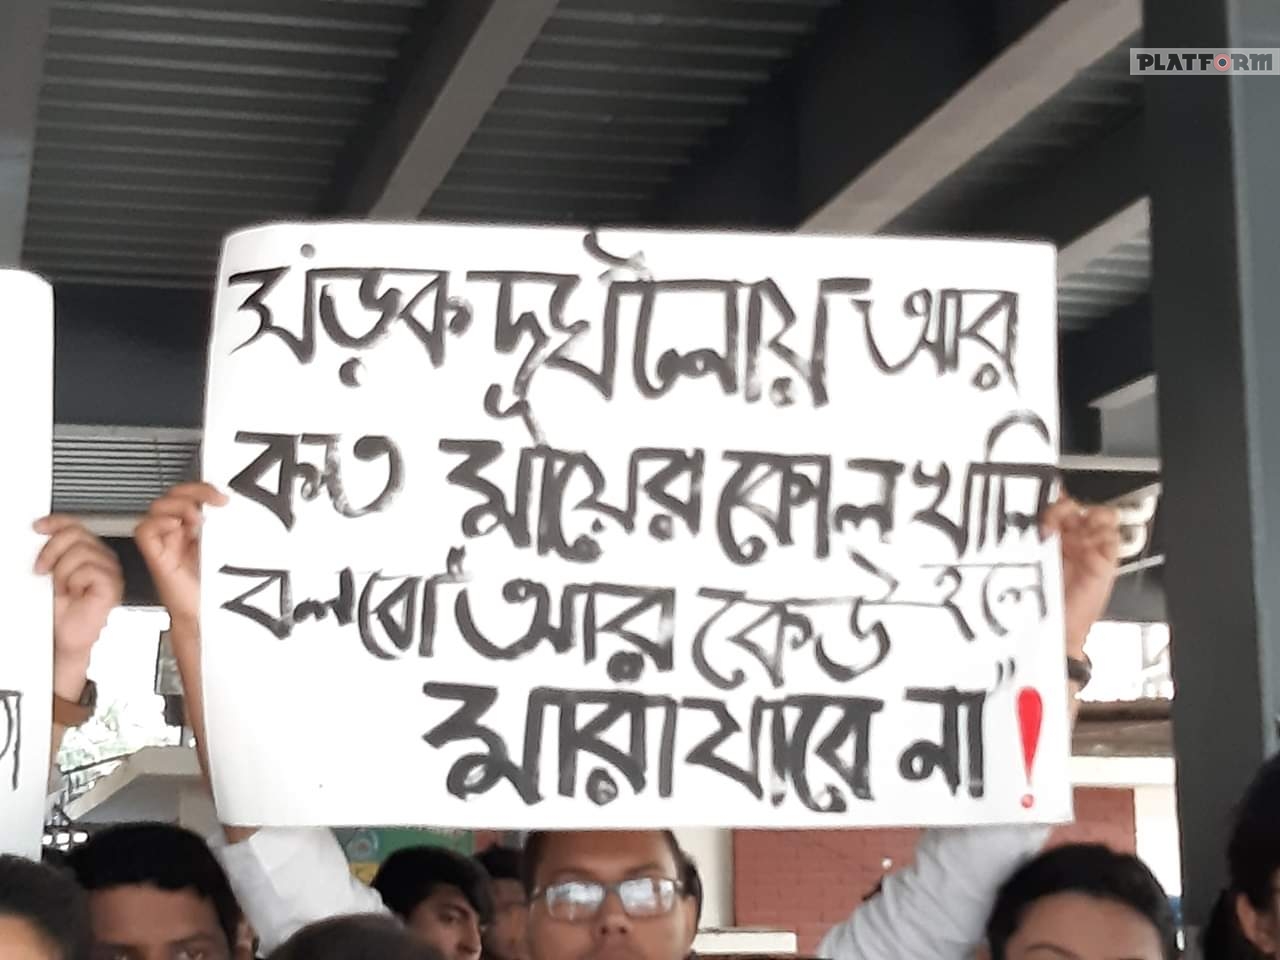 PLATFORM
সড়ক দূর্ঘটনায় আর
কত মায়ের কোল খালি
হলে
বলবো "আর কেউ
মারা যাবে না"!